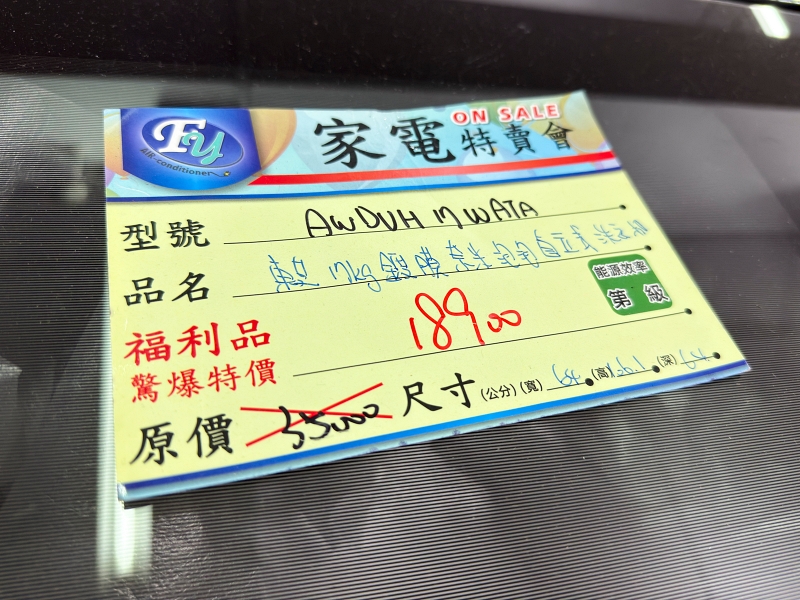 Fy
AIR-conditioner
ON SALE
家電特賣會
型號 AWDUH17WATA
品名 東芝 17kg鍍膜奈米 自立式洗衣機
能源效率
第 級
福利品
驚爆特價 18900
原價 35000 尺寸(公分)(寬) (高) (深)